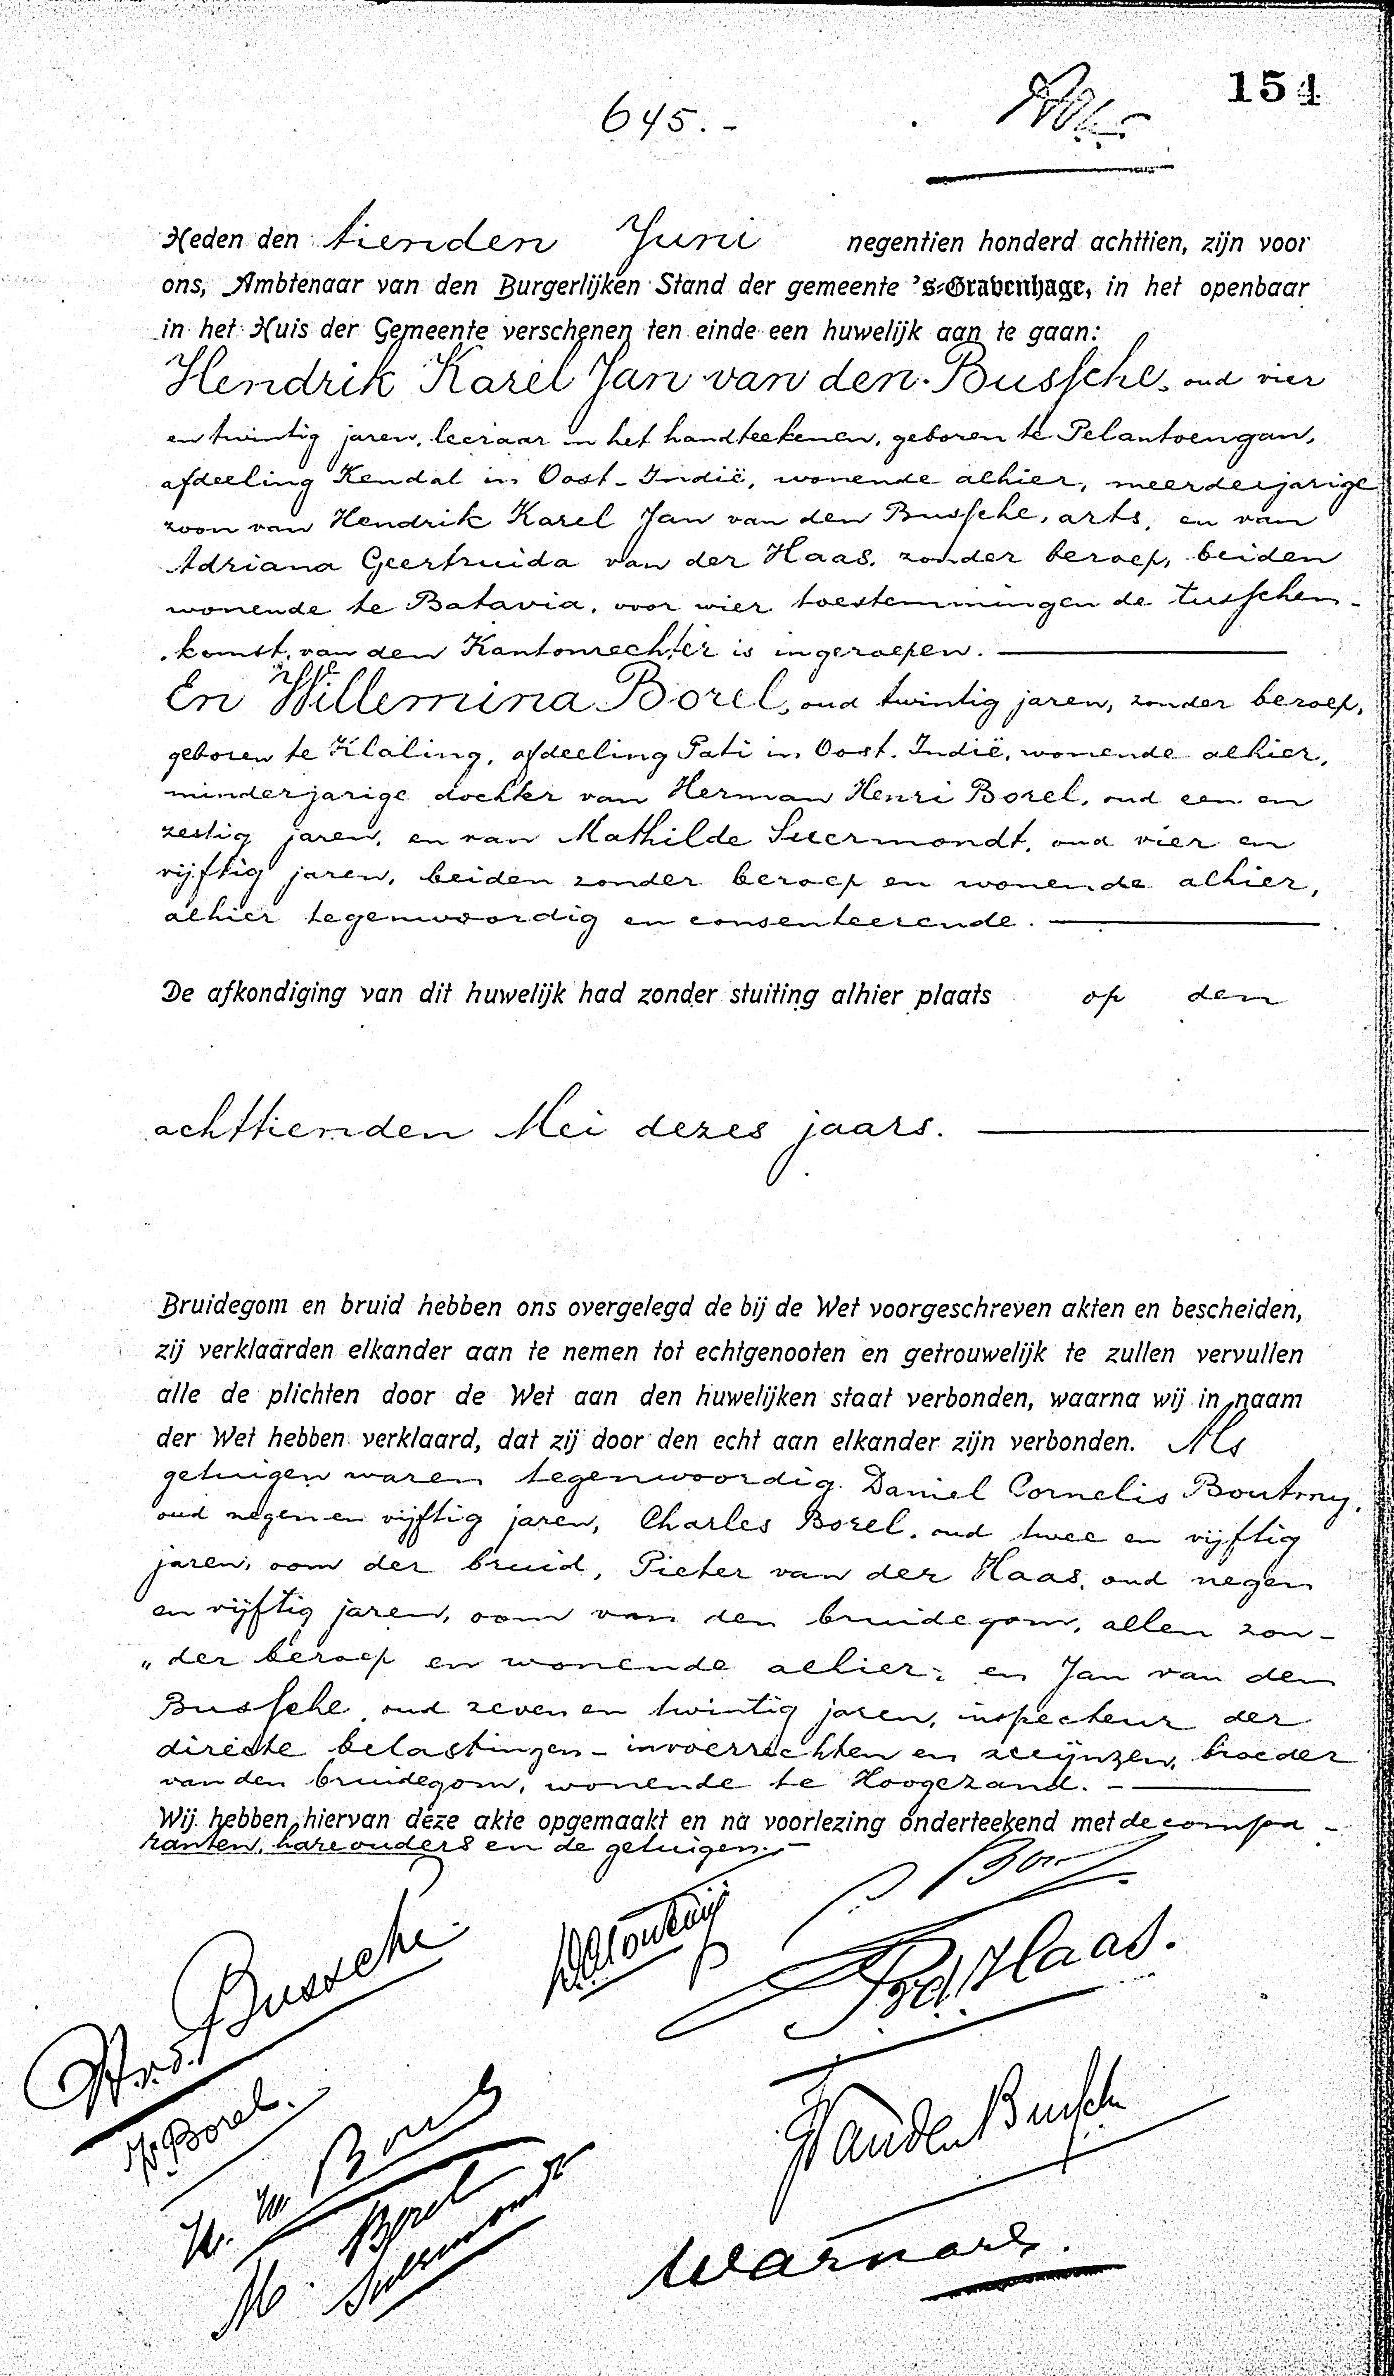 154
645.-
Heden den tienden Juni negentien honderd achttien, zijn voor
ons, Ambtenaar van den Burgerlijken Stand der gemeente 's-Gravenhage, in het openbaar
in het Huis der Gemeente verschenen ten einde een huwelijk aan te gaan:
Hendrik Karel Jan van den Bussche, oud vier
en twintig jaren, leeraar in het handteekenen, geboren te Pelantoengan,
afdeeling Kendal in Oost-Indië, wonende alhier, meerderjarige
zoon van Hendrik Karel Jan van den Bussche, arts, en van
Adriana Geertruida van der Haas, zonder beroep, beiden
wonende te Batavia, voor wier toestemmingen de tusschen-
komst van den Kantonrechter is ingeroepen.
En Willemina Borel, oud twintig jaren, zonder beroep,
geboren te Klaling, afdeeling Pati in Oost-Indië, wonende alhier,
minderjarige dochter van Herman Henri Borel, oud een en
zestig jaren, en van Mathilde Suermondt, oud vier en
vijftig jaren, beiden zonder beroep en wonende alhier,
alhier tegenwoordig en consenteerende.
De afkondiging van dit huwelijk had zonder stuiting alhier plaats op den
achttienden Mei dezes jaars.
Bruidegom en bruid hebben ons overgelegd de bij de Wet voorgeschreven akten en bescheiden,
zij verklaarden elkander aan te nemen tot echtgenooten en getrouwelijk te zullen vervullen
alle de plichten door de Wet aan den huwelijken staat verbonden, waarna wij in naam
der Wet hebben verklaard, dat zij door den echt aan elkander zijn verbonden. Als
getuigen waren tegenwoordig Daniel Cornelis Boutmy,
oud negen en vijftig jaren, Charles Borel, oud twee en vijftig
jaren, oom der bruid, Pieter van der Haas, oud negen
en vijftig jaren, oom van den bruidegom, allen zon-
„der beroep en wonende alhier; en Jan van den
Bussche, oud zeven en twintig jaren, inspecteur der
directe belastingen, invoerrechten en accijnzen, broeder
van den bruidegom, wonende te Hoogezand.
Wij hebben hiervan deze akte opgemaakt en na voorlezing onderteekend met de compa-
ranten, hare ouders en de getuigen.
C. Borel
DCBoutmy
Hvd.Bussche
Pvd.Haas.
W. Borel.
JvandenBussche
H. H. Borel
M. Borel
Suermondt
Warnars.